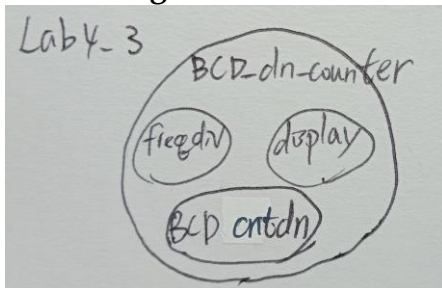 Lab4_3
BCD_dn_counter
freqdiv display
BCD cntdn